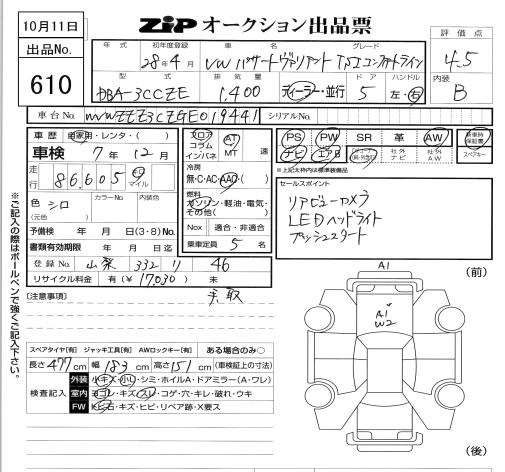 10月11日
出品No.
610
ZiP オークション出品票
評価点
4.5
内装
B
年式 初年度登録 車名 グレード
28年4月 VW パサートヴァリアント TSIコンフォートライン
型式 排気量 ドア ハンドル
DBA-3CCZE 1,400 ディーラー・並行 5 左・右
車台No. WVWZZZ3CZGE019441 シリアルNo.
車歴 自家用・レンタ・( )
車検 7年 12月
走行 86,605 キロ マイル
色 シロ (元色) カラーNo. 内装色
予備検 年 月 日(3・8)もの
書類有効期限 年 月 日迄
登録No. 山梨 332 り 46
リサイクル料金 有(¥ 17,030 ) 未
フロア コラム インパネ
AT MT 速
冷房
無・C・AC・AAC・( )
燃料
ガソリン・軽油・電気・その他( )
Nox 適合・非適合
乗車定員 5 名
PS PW SR 革 AW 新車時保証書
ナビ エアB 社外ナビ 社外AW スペアキー
※上記太枠内は標準装備品
セールスポイント
リアビューカメラ
LEDヘッドライト
プッシュスタート
[注意事項]
手、取
※ご記入の際はボールペンで強くご記入下さい。
スペアタイヤ[有] ジャッキ工具[有] AWロックキー[有] ある場合のみ○
長さ 477 cm 幅 183 cm 高さ 151 cm (車検証上の寸法)
検査記入
外装 小キズ・小凹・シミ・ホイルA・ドアミラー(A・ワレ)
室内 ヨゴレ・キズ・スレ・コゲ・穴・キレ・破れ・ウキ
FW 飛石・キズ・ヒビ・リペア跡・X要ス
(前)
A1
A1
W2
(後)